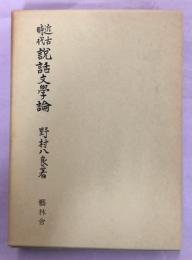 近古
時代
説話文學論
野村八良著
藝林舎